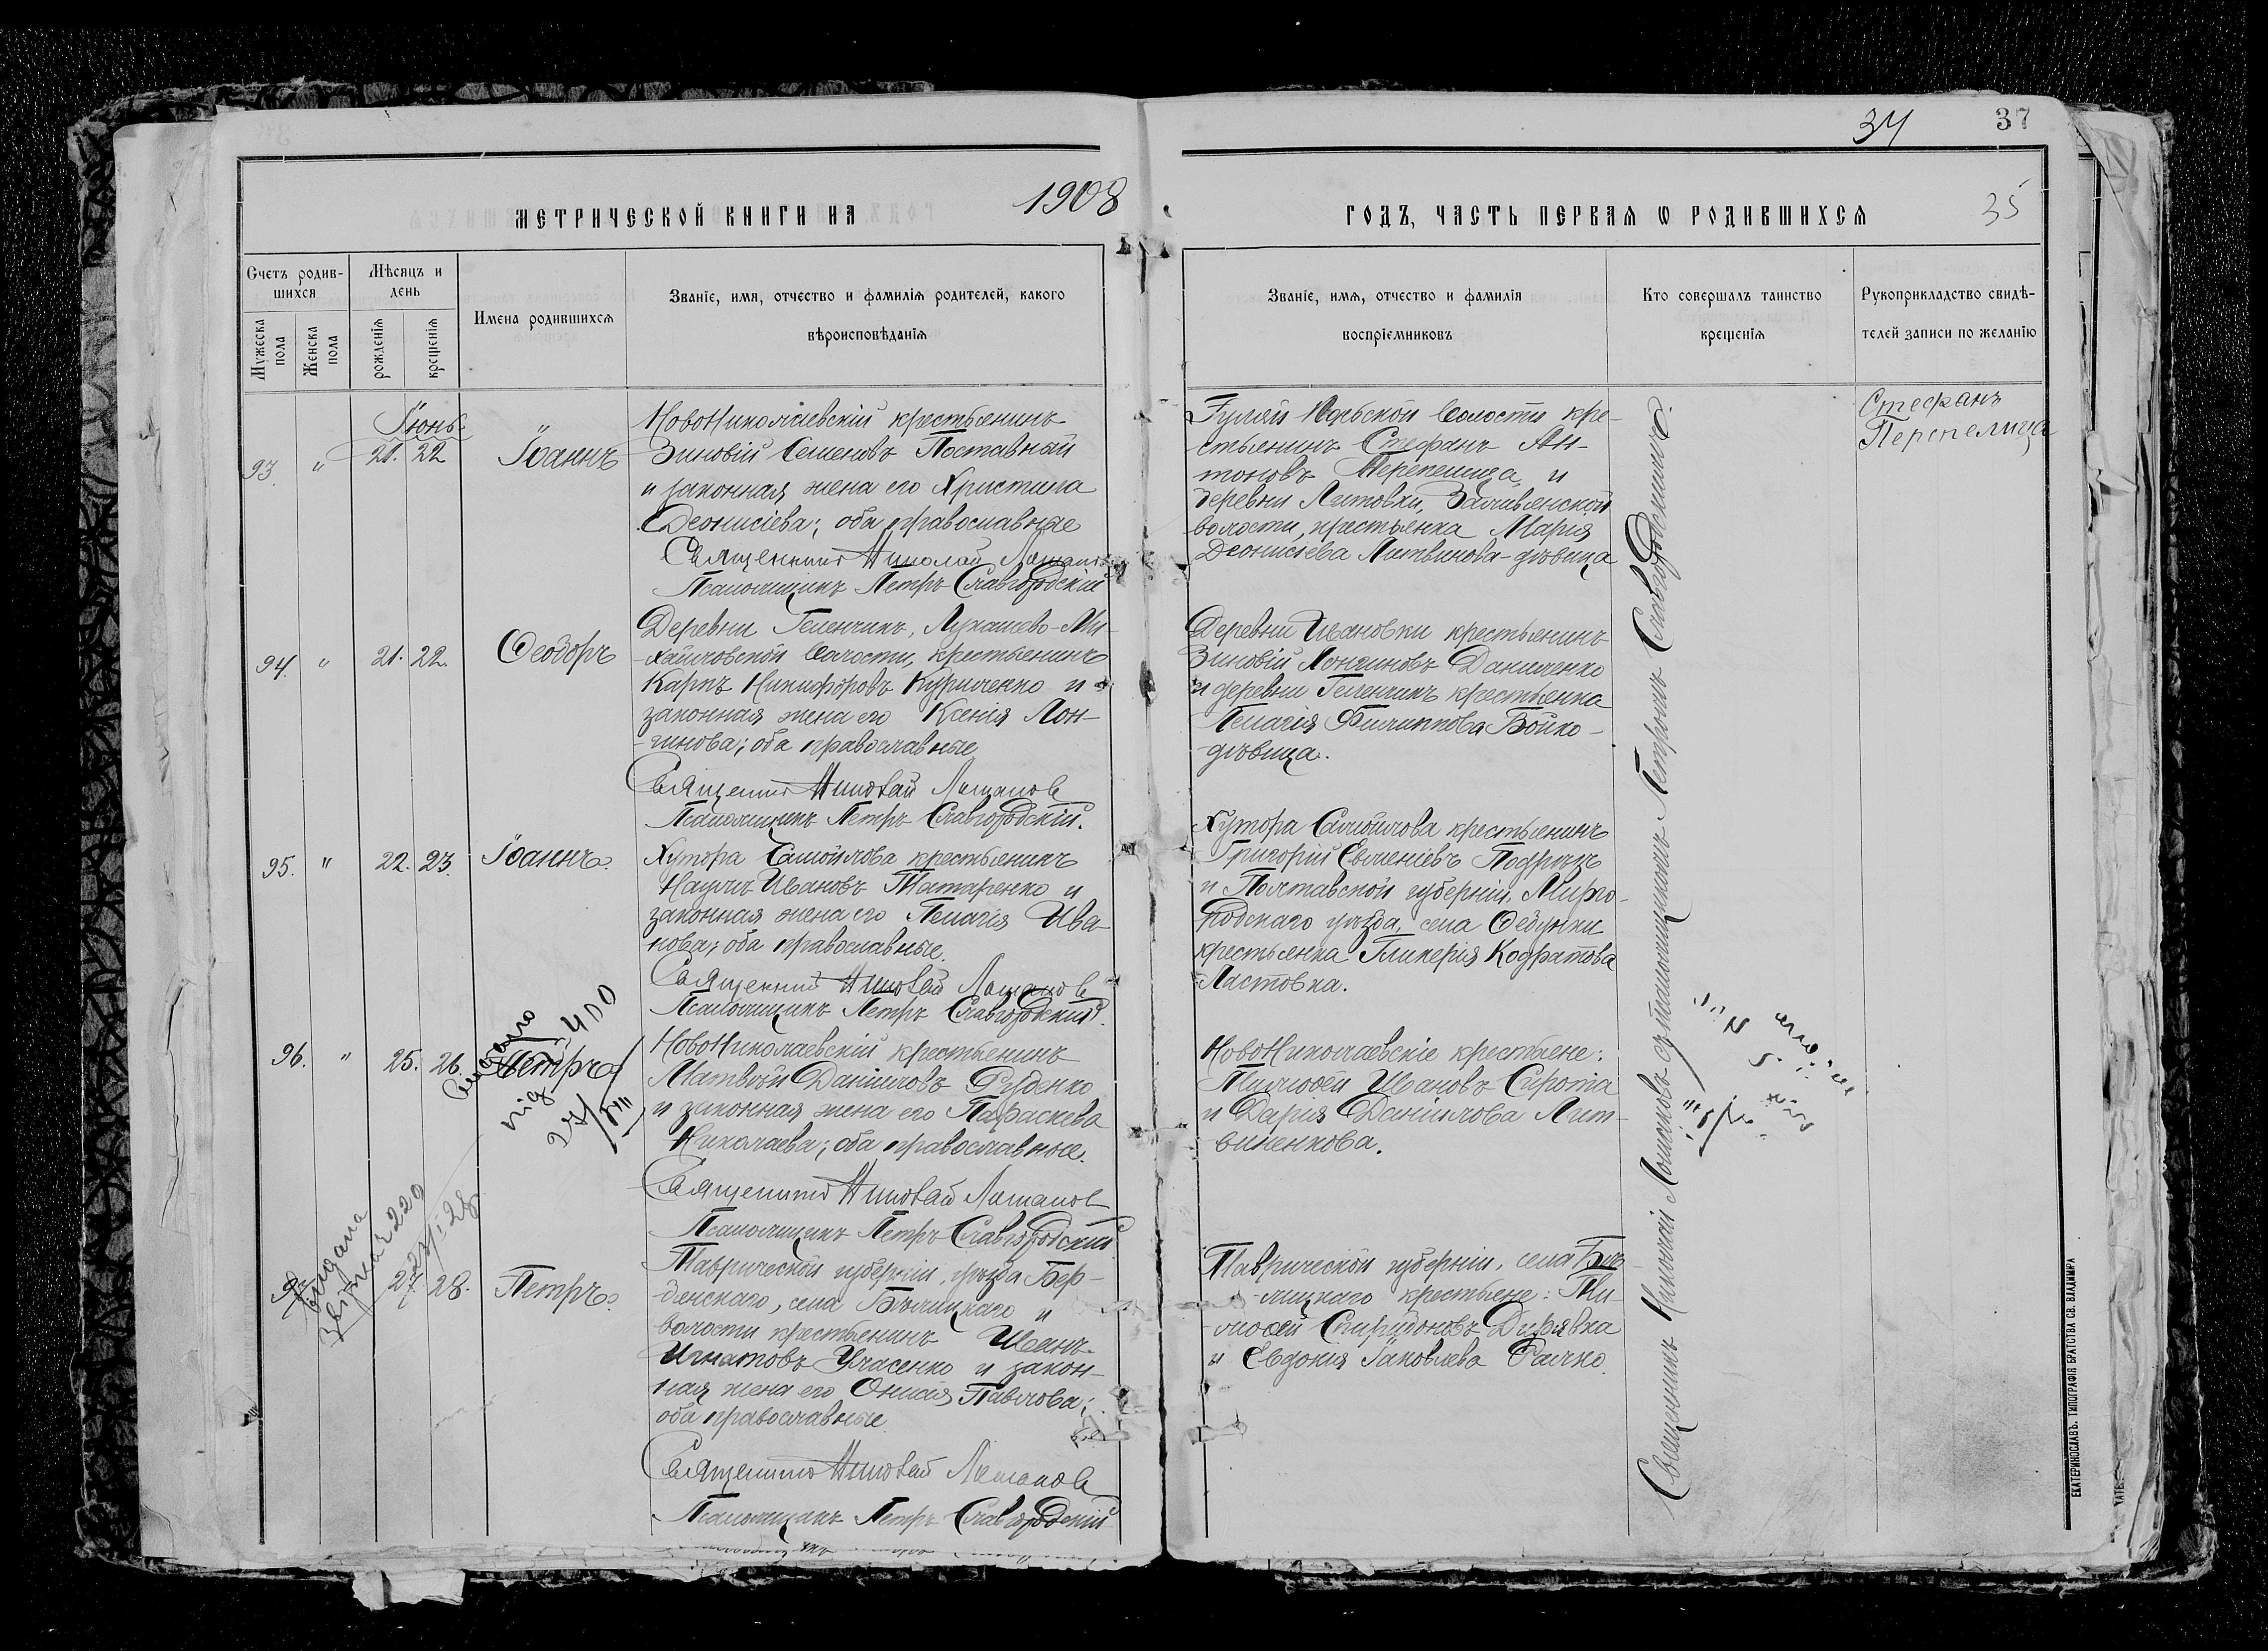 34
37
35
МЕТРИЧЕСКОЙ КНИГИ НА 1908
ГОДЪ, ЧАСТЬ ПЕРВАЯ Ѡ РОДИВШИХСЯ
Счетъ родив-
шихся
Мужеска пола
Женска пола
Мѣсяцъ и
день
рожденія
крещенія
Имена родившихся
Званіе, имя, отчество и фамилія родителей, какого
вѣроисповѣданія
Званіе, имя, отчество и фамилія
воспріемниковъ
Кто совершалъ таинство
крещенія
Рукоприкладство свидѣ-
телей записи по желанію
Іюнь
93. " 21. 22 Іоаннъ
НовоНиколаевскій крестьянинъ
Зиновій Семеновъ Поставный
и законная жена его Христина
Деонисіева; оба православные
Священникъ Николай
Псаломщикъ Петръ Славгородскій
Гуляй Польской волости кре-
стьянинъ Стефанъ Ан-
тоновъ Перепелица и
деревни Литовки,
волости, крестьянка Марія
Деонисіева Литвинова-дѣвица
Стефанъ
Перепелица
94. " 21. 22. Ѳеодоръ
Деревни Геленчикъ, Лукашево-Ми-
хайловской волости, крестьянинъ
Карпъ Никифоровъ Куриленко и
законная жена его Ксенія Лон-
гинова; оба православные
Священникъ Николай
Псаломщикъ Петръ Славгородскій.
Деревни Ивановки крестьянинъ
Зиновій Лонгиновъ Даниленко
и деревни Геленчикъ крестьянка
Пелагія Филиппова Бойко-
дѣвица.
95. " 22. 23. Іоаннъ.
Хутора Самойлова крестьянинъ
Наумъ Ивановъ Татаренко и
законная жена его Пелагія Ива-
нова; оба православные.
Священникъ Николай
Псаломщикъ Петръ Славгородскій.
Хутора Самойлова крестьянинъ
Григорій Евменіевъ Подрѣзъ
и Полтавской губерніи, Мирго-
родскаго уѣзда, села Ѳедунки
крестьянка Гликерія Кодратова
Ластовка.
96. " 25. 26. Петръ
400
НовоНиколаевскій крестьянинъ
Матвѣй Даніиловъ Руденко
и законная жена его Параскева
Николаева; оба православные.
Священникъ Николай
Псаломщикъ Петръ Славгородскій
НовоНиколаевскіе крестьяне:
Тимоѳей Ивановъ Сирота
и Дарія Даніилова Лит-
виненкова.
97. 27. 28. Петръ.
видана
Таврической губерніи, уѣзда Бер-
дянскаго, села Бѣлицкаго и
волости крестьянинъ Иванъ
Игнатовъ Уласенко и закон-
ная жена его Онисія Павлова;
оба православные
Священникъ Николай
Псаломщикъ Петръ Славгородскій
Таврической губерніи, села Бѣ-
лицкаго крестьяне: Ти-
моѳей Спиридоновъ Дирявка
и Евдокія Іаковлева Рачко
Священникъ Николай съ псаломщикомъ Петромъ Славгородскимъ.
ЕКАТЕРИНОСЛАВЪ. ТИПОГРАФІЯ БРАТСТВА СВ. ВЛАДИМІРА